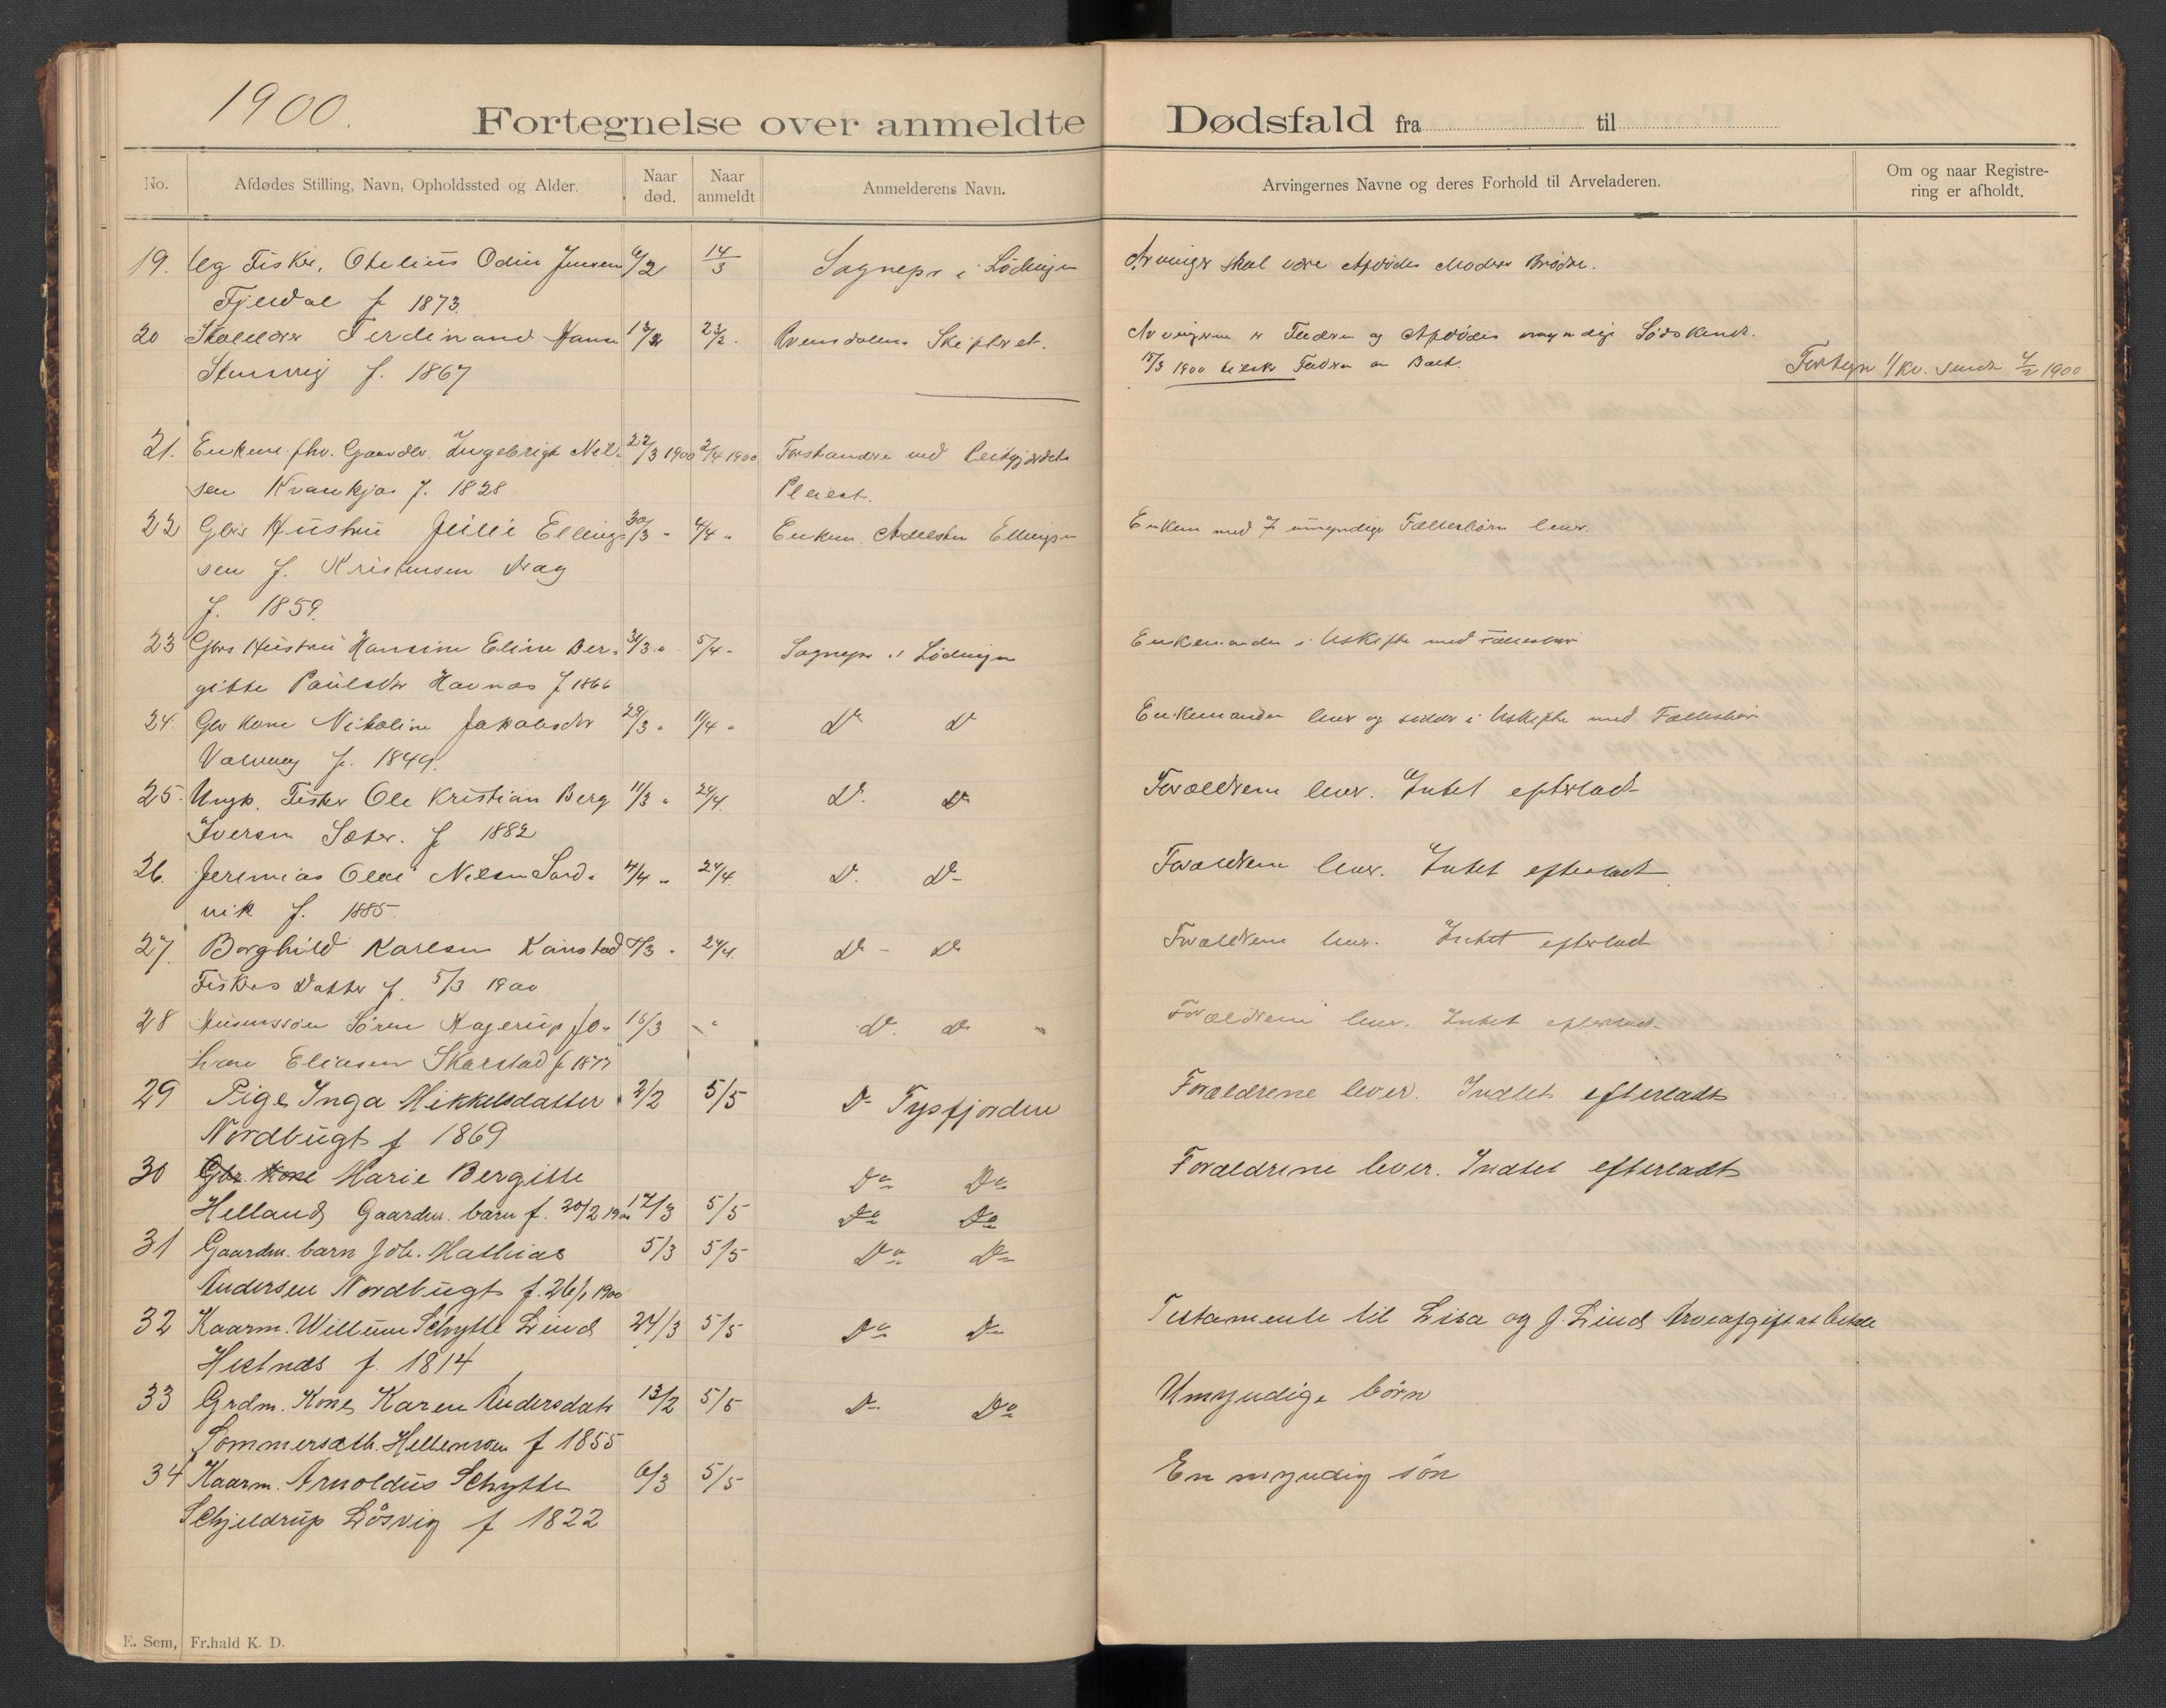 1900.
Fortegnelse over anmeldte Dødsfald fra til
No. Afdødes Stilling, Navn, Opholdssted og Alder. Naar død. Naar anmeldt Anmelderens Navn. Arvingernes Navne og deres Forhold til Arveladeren. Om og naar Registrering er afholdt.
19. Ug Fisker, Otelius Odin Jensen 6/2 14/3 Sognepr i Lödingen Arvinger skal være Afdödes Moders Brödre.
Fjeldal f 1873.
20 Skolelærer Ferdinand Hansen 13/2 23/2. Skiftret. Arvingerne er Fædren og Afdödes umyndige Södskende.
Stensvig f. 1867 15/3 1900 Fædren Fortegn 1/kv. sendt 1900
21. Enkem. fhv. Gaardbr. Ingebrigt Niel- 22/3 1900 2/4 1900 Forstander ved
sen Kvankjos f. 1828 Pleiest.
22 Gbrs Hustru Julie Elling- 30/3 " 4/4 " Enkem. Andreas Ellingsen Enkem med 7 umyndige Fællesbörn lever.
sen f. Kristensen Drag
f. 1859.
23 Gbrs Hustru Hansine Eline Ber- 31/3 " 5/4 " Sognepr i Lödingen Enkemanden i Uskifte med Fællesbörn
gitte Paulsdtr Havnæs f 1866
24. Gbr Kone Nikoline Jakobsdtr 29/3 " 11/4 " Do Do Enkemanden lever og sidder i Uskifte med Fællesbörn
f. 1849.
25. Ungk. Fisker Ole Kristian Berg 11/3 " 24/4. Do. Do Forældrene lever. Intet efterladt
Iversen Sæter. f 1882
26. Jeremias Olai Nilsen Sand- 4/4 " 24/4. Do. Do Forældrene lever. Intet efterladt
vik f. 1885.
27. Borghild Karlsen Kanstad /3 " 24/4. Do Do Forældrene lever. Intet efterladt
Fiskers Datter f. 5/3 1900
28 Husmssön Sören Hagerup Jo- 16/3 " Do. Do Forældrene lever. Intet efterladt
han Eliasen Skarstad f 1877
29 Pige Inga Mikkelsdatter 2/2 5/5 Do Tysfjorden Forældrene lever. Indtet efterladt
Nordbugt f 1869
30 Gbr. Kone Marie Bergitte Do Do Forældrene lever. Indtet efterladt
Helland Gaardm. barn f. 20/2 1900 17/3 5/5 Do Do
31 Gaardm. barn Joh. Mathias 5/3 5/5 Do Do
Andersen Nordbugt f. 26/1 1900
32 Kaarm. Willum Schytte Lind 24/3 5/5 Do Do Testamente til Lisa og J. Lind Arveafgift at betale
Hestnæs f. 1814
33 Grdm. Kone Karen Andersdatr 13/2 5/5 Do Do Umyndige börn
Sommersætb. Hellemoen f 1855
34 Kaarm. Arnoldus Schytte 6/3 5/5 En myndig sön
Schjeldrup Lösvig f 1822
E. Sem, Fr.hald K. D.